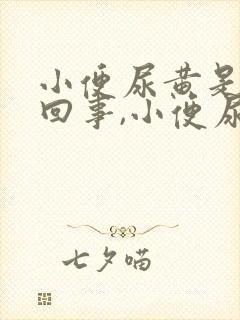 小便尿黄是
回事,小便尿
七夕喵